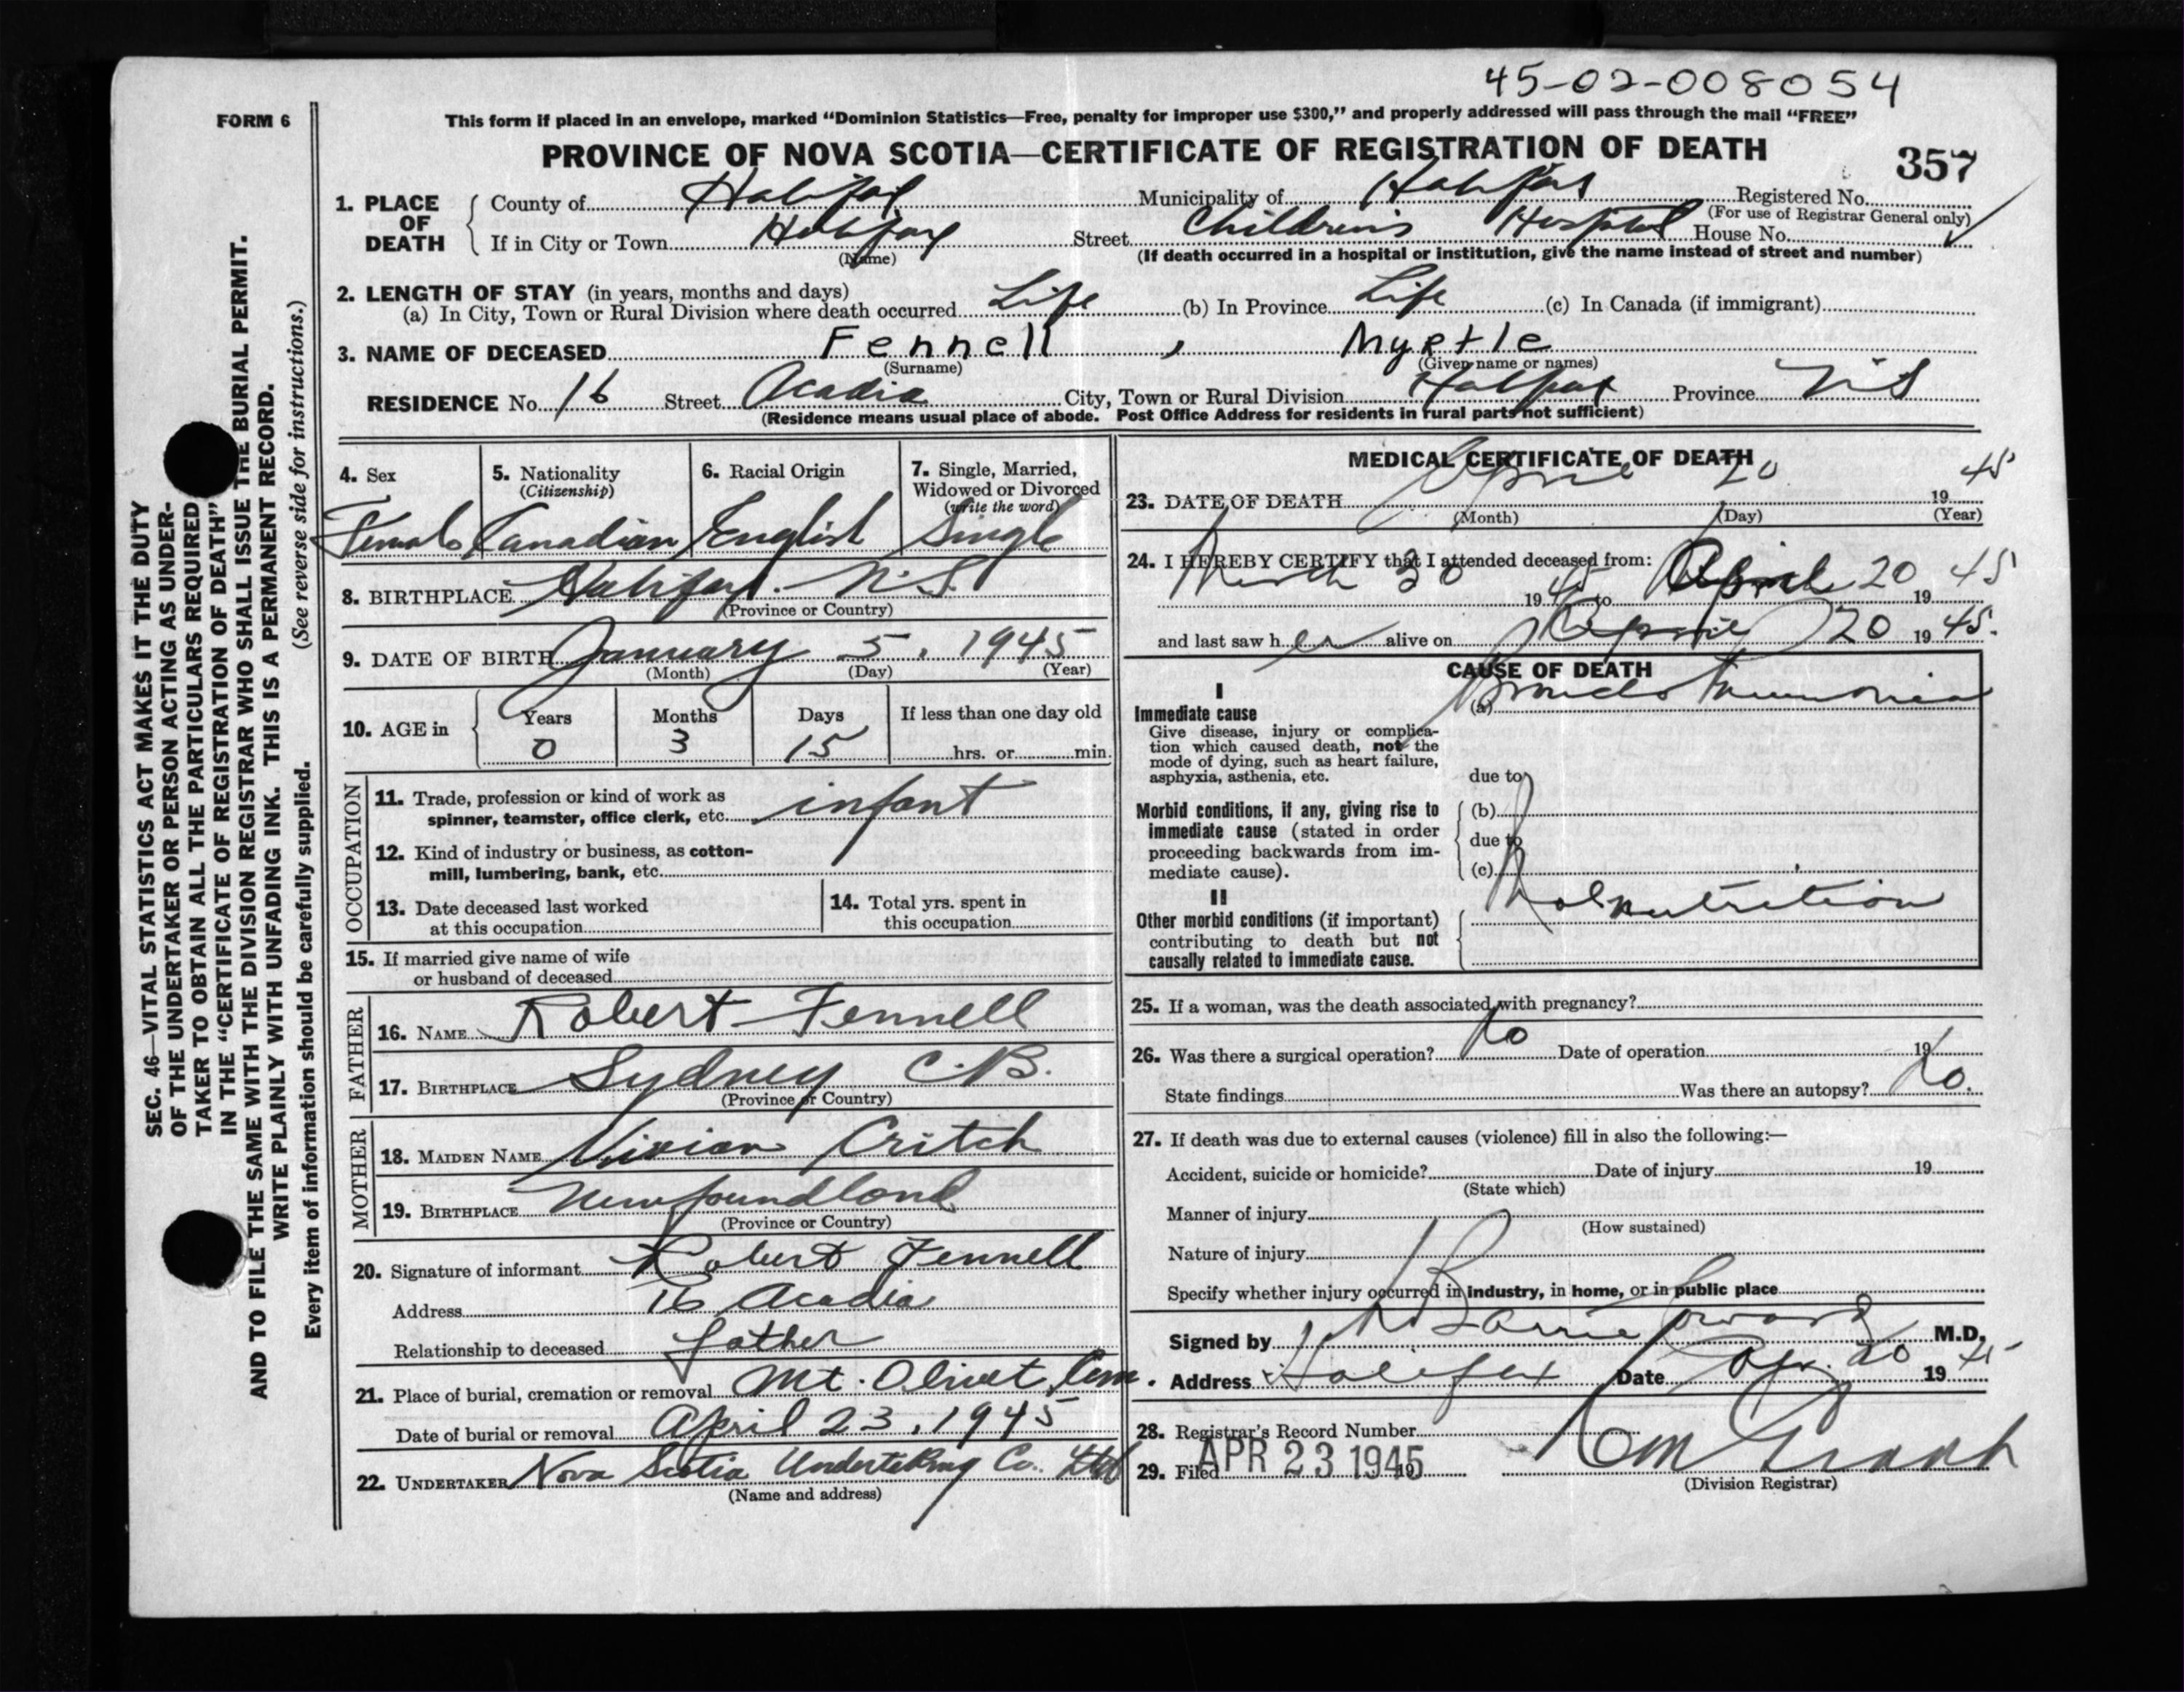 45-02-008054
FORM 6
This form if placed in an envelope, marked "Dominion Statistics—Free, penalty for improper use $300," and properly addressed will pass through the mail "FREE"
PROVINCE OF NOVA SCOTIA—CERTIFICATE OF REGISTRATION OF DEATH
357
1. PLACE OF DEATH { County of Halifax Municipality of Halifax Registered No.
(For use of Registrar General only)
If in City or Town Halifax Street Children's Hospital House No. ✓
(Name) (If death occurred in a hospital or institution, give the name instead of street and number)
2. LENGTH OF STAY (in years, months and days)
(a) In City, Town or Rural Division where death occurred Life (b) In Province Life (c) In Canada (if immigrant)
3. NAME OF DECEASED Fennell , Myrtle
(Surname) (Given name or names)
RESIDENCE No. 16 Street Acadia City, Town or Rural Division Halifax Province N.S
(Residence means usual place of abode. Post Office Address for residents in rural parts not sufficient)
SEC. 46—VITAL STATISTICS ACT MAKES IT THE DUTY
OF THE UNDERTAKER OR PERSON ACTING AS UNDER-
TAKER TO OBTAIN ALL THE PARTICULARS REQUIRED
IN THE "CERTIFICATE OF REGISTRATION OF DEATH"
AND TO FILE THE SAME WITH THE DIVISION REGISTRAR WHO SHALL ISSUE THE BURIAL PERMIT.
WRITE PLAINLY WITH UNFADING INK. THIS IS A PERMANENT RECORD.
Every item of information should be carefully supplied. (See reverse side for instructions.)
4. Sex
Female
5. Nationality
(Citizenship)
Canadian
6. Racial Origin
English
7. Single, Married,
Widowed or Divorced
(write the word)
Single
8. BIRTHPLACE Halifax. N.S.
(Province or Country)
9. DATE OF BIRTH January 5, 1945
(Month) (Day) (Year)
10. AGE in { Years Months Days If less than one day old
0 3 15 hrs. or min.
OCCUPATION
11. Trade, profession or kind of work as
spinner, teamster, office clerk, etc. infant
12. Kind of industry or business, as cotton-
mill, lumbering, bank, etc.
13. Date deceased last worked
at this occupation
14. Total yrs. spent in
this occupation
15. If married give name of wife
or husband of deceased
FATHER
16. NAME Robert Fennell
17. BIRTHPLACE Sydney C.B.
(Province or Country)
MOTHER
18. MAIDEN NAME Vivian Critch
19. BIRTHPLACE Newfoundland
(Province or Country)
20. Signature of informant Robert Fennell
Address 16 Acadia
Relationship to deceased father
21. Place of burial, cremation or removal Mt. Olivet Cem.
Date of burial or removal April 23, 1945
22. UNDERTAKER Nova Scotia Undertaking Co. Ltd
(Name and address)
MEDICAL CERTIFICATE OF DEATH
23. DATE OF DEATH April 20 1945
(Month) (Day) (Year)
24. I HEREBY CERTIFY that I attended deceased from:
March 30 1945 to April 20 1945
and last saw her alive on April 20 1945.
CAUSE OF DEATH
I
Immediate cause (a) Broncho Pneumonia
Give disease, injury or complica-
tion which caused death, not the
mode of dying, such as heart failure,
asphyxia, asthenia, etc.
due to
Morbid conditions, if any, giving rise to (b)
immediate cause (stated in order
proceeding backwards from im- due to
mediate cause). (c)
II
Other morbid conditions (if important) Malnutrition
contributing to death but not
causally related to immediate cause.
25. If a woman, was the death associated with pregnancy?
26. Was there a surgical operation? No Date of operation 19
State findings Was there an autopsy? No.
27. If death was due to external causes (violence) fill in also the following:—
Accident, suicide or homicide? Date of injury 19
(State which)
Manner of injury
(How sustained)
Nature of injury
Specify whether injury occurred in industry, in home, or in public place
Signed by Barrie Coward M.D.
Address Halifax Date Apr. 20 1945
28. Registrar's Record Number
29. Filed APR 23 1945 19
(Division Registrar)